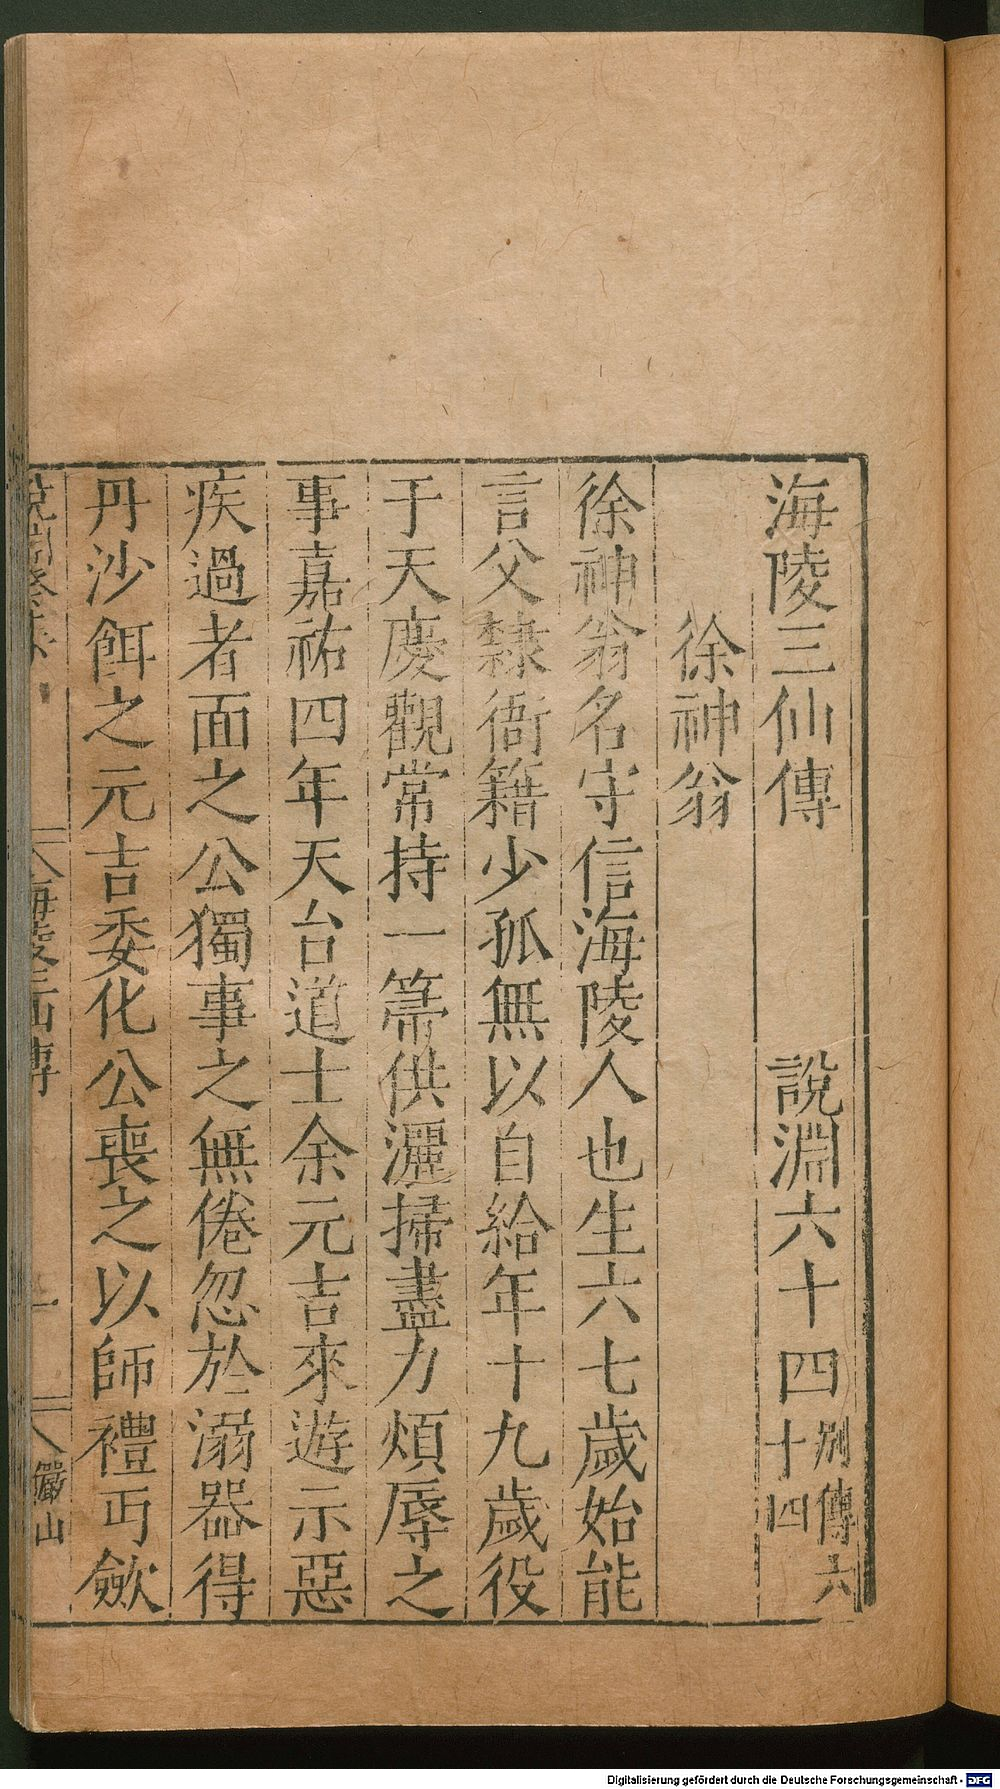 海陵三仙傳 說淵六十四 別傳六十四
徐神翁
徐神翁名守信海陵人也生六七歲始能
言父隸衙籍少孤無以自給年十九歲役
于天慶觀常持一箒供灑掃盡力煩辱之
事嘉祐四年天台道士余元吉來遊示惡
疾過者面之公獨事之無倦忽於溺器得
丹沙餌之元吉委化公喪之以師禮丏歛
海陵三仙傳
一
儼山
Digitalisierung gefördert durch die Deutsche Forschungsgemeinschaft - DFG